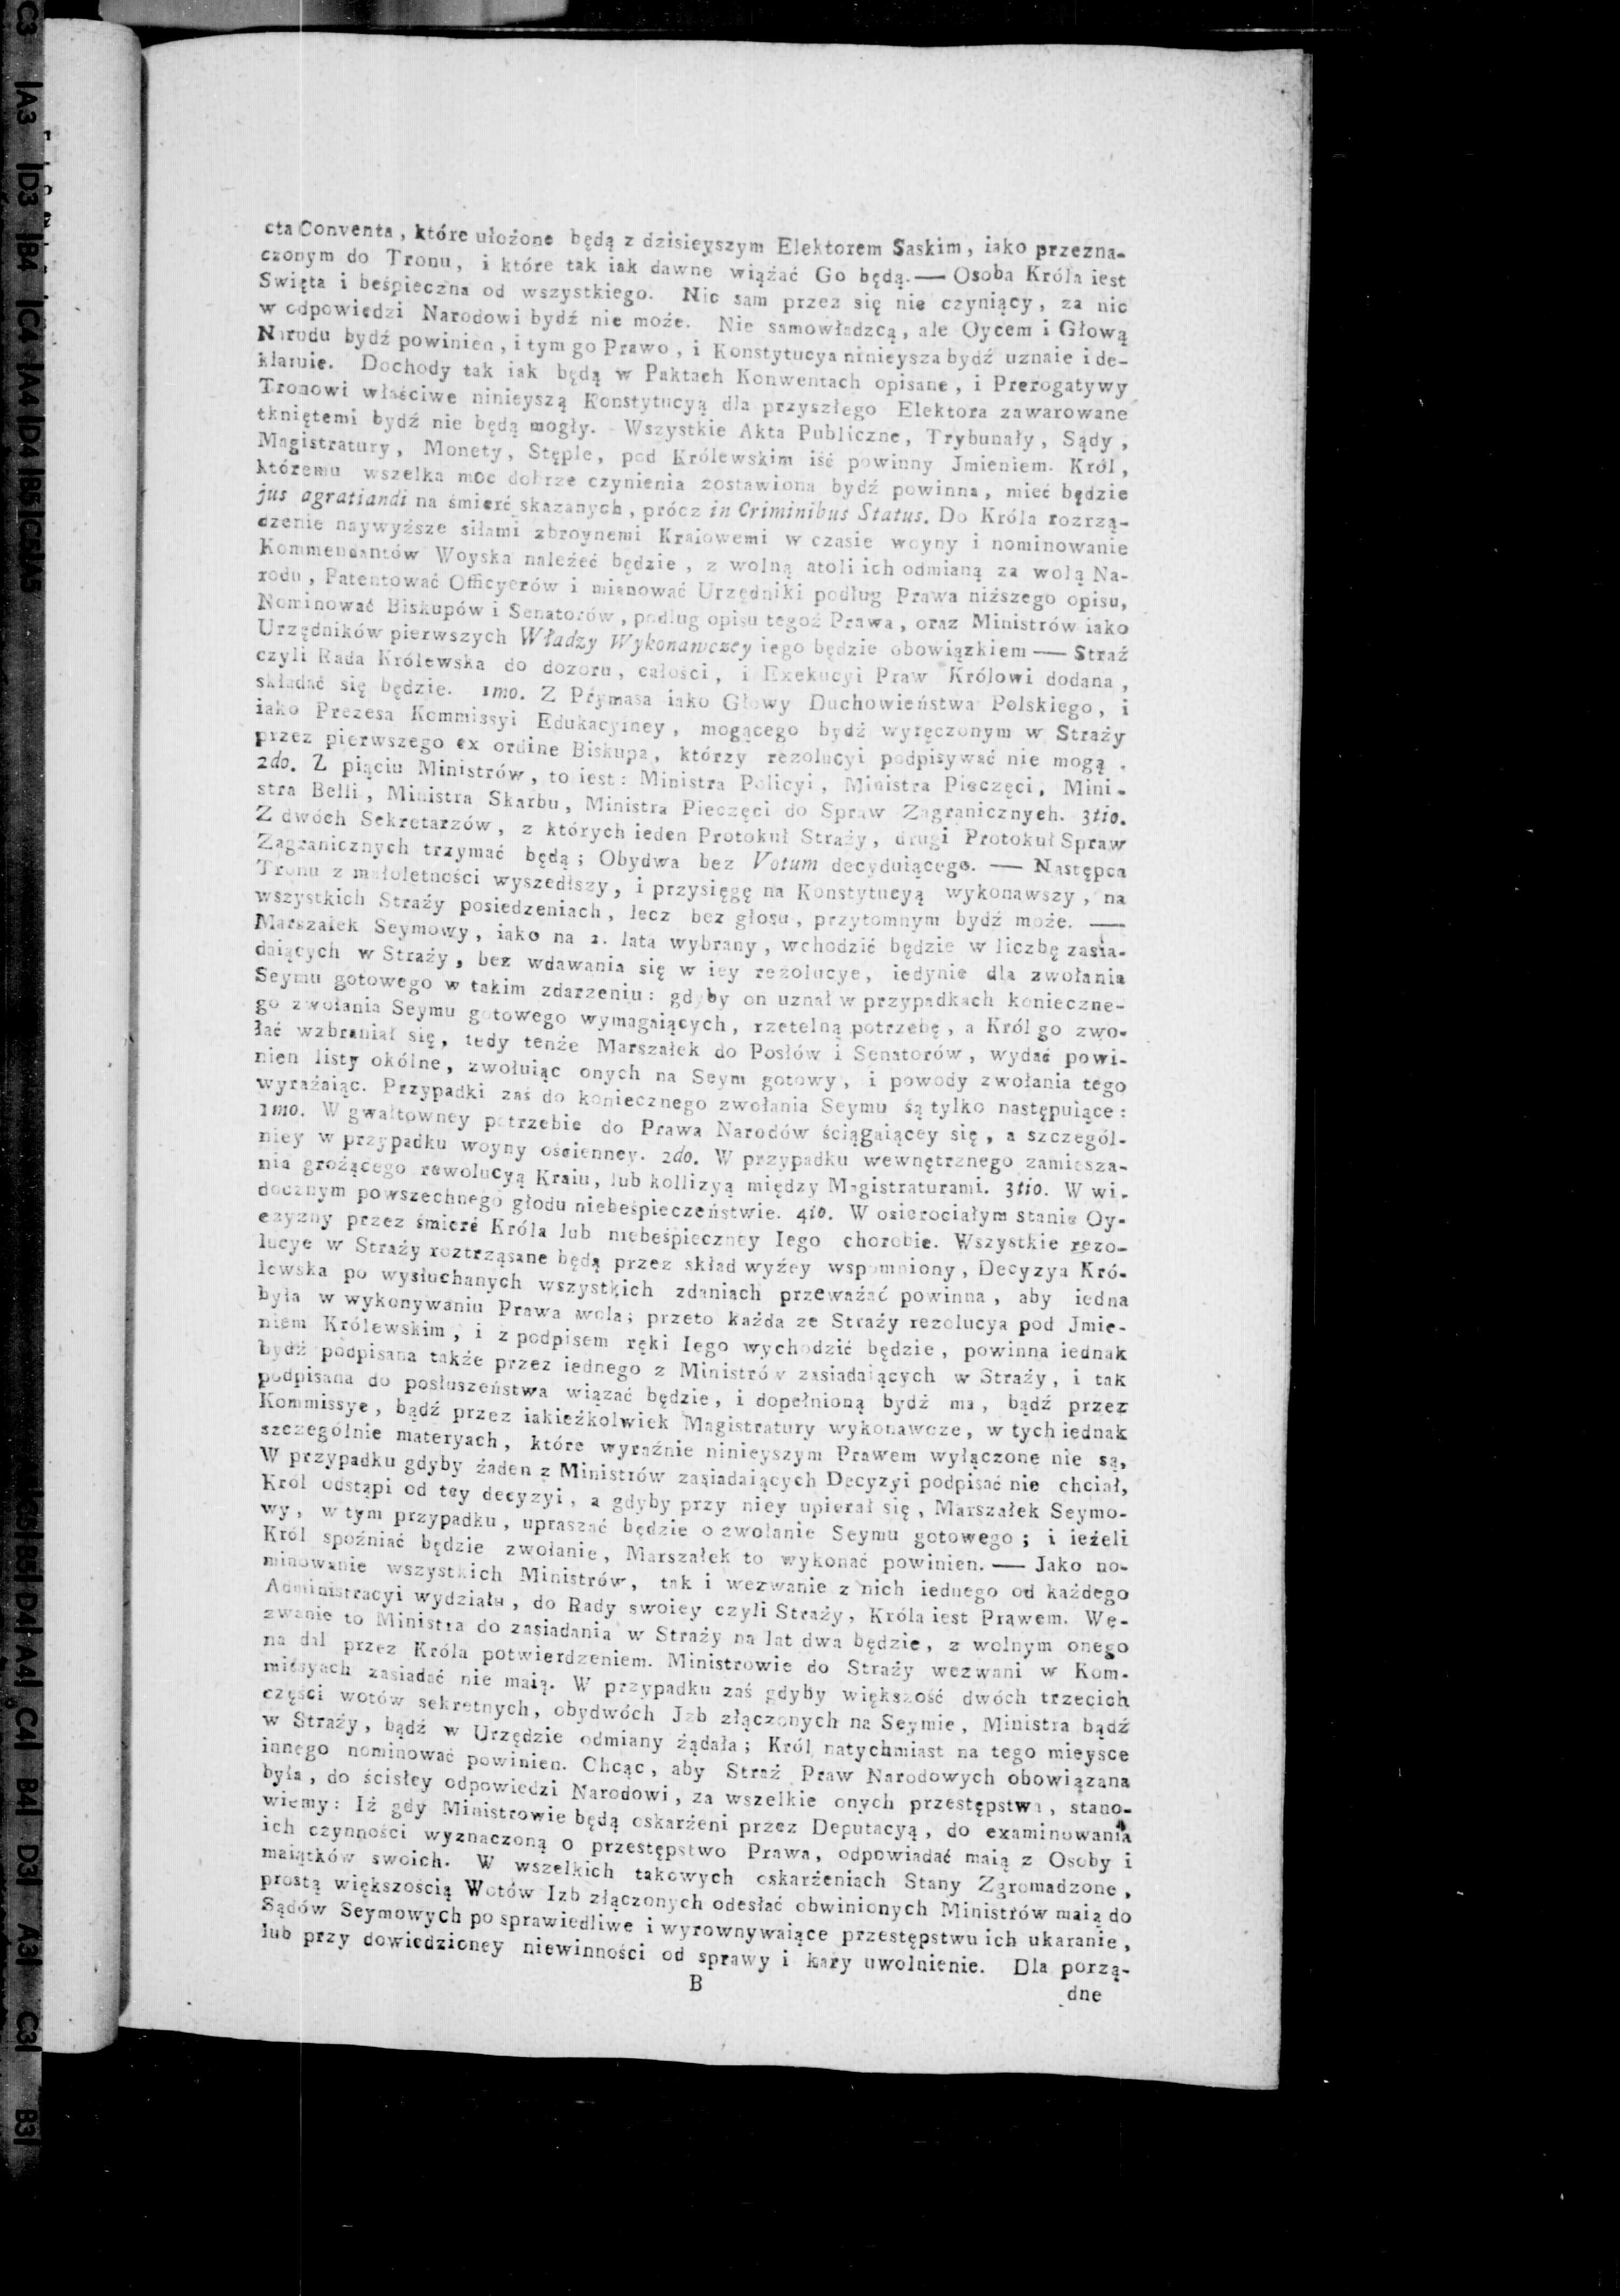 cta Conventa, które ułożone będą z dzisieyszym Elektorem Saskim, iako przezna-
czonym do Tronu, i które tak iak dawne wiązać Go będą.— Osoba Króla iest
Swięta i beśpieczna od wszystkiego. Nic sam przez się nie czyniący, za nic
w odpowiedzi Narodowi bydź nie może. Nie samowładzcą, ale Oycem i Głową
Narodu bydź powinien, i tym go Prawo, i Konstytucya ninieysza bydź uznaie i de-
klaruie. Dochody tak iak będą w Paktach Konwentach opisane, i Prerogatywy
Tronowi właściwe ninieyszą Konstytucyą dla przyszłego Elektora zawarowane
tkniętemi bydź nie będą mogły. Wszystkie Akta Publiczne, Trybunały, Sądy,
Magistratury, Monety, Stęple, pod Królewskim iść powinny Jmieniem. Król,
któremu wszelka moc dobrze czynienia zostawiona bydź powinna, mieć będzie
jus agratiandi na śmierć skazanych, prócz in Criminibus Status. Do Króla rozrzą-
dzenie naywyższe siłami zbroynemi Kraiowemi w czasie woyny i nominowanie
Kommendantów Woyska należeć będzie, z wolną atoli ich odmianą za wolą Na-
rodu, Patentować Officyerów i mianować Urzędniki podług Prawa niższego opisu,
Nominować Biskupów i Senatorów, podług opisu tegoż Prawa, oraz Ministrów iako
Urzędników pierwszych Władzy Wykonawczey iego będzie obowiązkiem — Straż
czyli Rada Królewska do dozoru, całości, i Exekucyi Praw Królowi dodana,
składać się będzie. 1mo. Z Prymasa iako Głowy Duchowieństwa Polskiego, i
iako Prezesa Kommissyi Edukacyiney, mogącego bydź wyręczonym w Straży
przez pierwszego ex ordine Biskupa, którzy rezolucyi podpisywać nie mogą.
2do. Z piąciu Ministrów, to iest: Ministra Policyi, Ministra Pieczęci, Mini-
stra Belli, Ministra Skarbu, Ministra Pieczęci do Spraw Zagranicznych. 3tio.
Z dwóch Sekretarzów, z których ieden Protokuł Straży, drugi Protokuł Spraw
Zagranicznych trzymać będą; Obydwa bez Votum decyduiącego. — Następca
Tronu z małoletności wyszedłszy, i przysięgę na Konstytucyą wykonawszy, na
wszystkich Straży posiedzeniach, lecz bez głosu, przytomnym bydź może. —
Marszałek Seymowy, iako na 2. lata wybrany, wchodzić będzie w liczbę zasia-
daiących w Straży, bez wdawania się w iey rezolucye, iedynie dla zwołania
Seymu gotowego w takim zdarzeniu: gdyby on uznał w przypadkach konieczne-
go zwołania Seymu gotowego wymagaiących, rzetelną potrzebę, a Król go zwo-
łać wzbraniał się, tedy tenże Marszałek do Posłów i Senatorów, wydać powi-
nien listy okólne, zwołuiąc onych na Seym gotowy, i powody zwołania tego
wyrażaiąc. Przypadki zaś do koniecznego zwołania Seymu są tylko następuiące:
1mo. W gwałtowney potrzebie do Prawa Narodów ściągaiącey się, a szczegól-
niey w przypadku woyny ościenney. 2do. W przypadku wewnętrznego zamiesza-
nia grożącego rewolucyą Kraiu, lub kollizyą między Magistraturami. 3tio. W wi-
docznym powszechnego głodu niebeśpieczeństwie. 4to. W osierociałym stanie Oy-
czyzny przez śmierć Króla lub niebeśpieczney Iego chorobie. Wszystkie rezo-
lucye w Straży roztrząsane będą przez skład wyżey wspomniony, Decyzya Kró-
lewska po wysłuchanych wszystkich zdaniach przeważać powinna, aby iedna
była w wykonywaniu Prawa wola; przeto każda ze Straży rezolucya pod Jmie-
niem Królewskim, i z podpisem ręki Iego wychodzić będzie, powinna iednak
bydź podpisana także przez iednego z Ministrów zasiadaiących w Straży, i tak
podpisana do posłuszeństwa wiązać będzie, i dopełnioną bydź ma, bądź przez
Kommissye, bądź przez iakieżkolwiek Magistratury wykonawcze, w tych iednak
szczególnie materyach, które wyraźnie ninieyszym Prawem wyłączone nie są,
W przypadku gdyby żaden z Ministrów zasiadaiących Decyzyi podpisać nie chciał,
Król odstąpi od tey decyzyi, a gdyby przy niey upierał się, Marszałek Seymo-
wy, w tym przypadku, upraszać będzie o zwołanie Seymu gotowego; i ieżeli
Król spoźniać będzie zwołanie, Marszałek to wykonać powinien. — Jako no-
minowanie wszystkich Ministrów, tak i wezwanie z nich iednego od każdego
Administracyi wydziału, do Rady swoiey czyli Straży, Króla iest Prawem. We-
zwanie to Ministra do zasiadania w Straży na lat dwa będzie, z wolnym onego
na dal przez Króla potwierdzeniem. Ministrowie do Straży wezwani w Kom-
missyach zasiadać nie maią. W przypadku zaś gdyby większość dwóch trzecich
części wotów sekretnych, obydwóch Jzb złączonych na Seymie, Ministra bądź
w Straży, bądź w Urzędzie odmiany żądała; Król natychmiast na tego mieysce
innego nominować powinien. Chcąc, aby Straż Praw Narodowych obowiązana
była, do ścisłey odpowiedzi Narodowi, za wszelkie onych przestępstwa, stano-
wiemy: Iż gdy Ministrowie będą oskarżeni przez Deputacyą, do examinowania
ich czynności wyznaczoną o przestępstwo Prawa, odpowiadać maią z Osoby i
maiątków swoich. W wszelkich takowych oskarżeniach Stany Zgromadzone,
prostą większością Wotów Izb złączonych odesłać obwinionych Ministrów maią do
Sądów Seymowych po sprawiedliwe i wyrownywaiące przestępstwu ich ukaranie,
lub przy dowiedzioney niewinności od sprawy i kary uwolnienie. Dla porzą-
B
dne
C3 A3 D3 B4 C4 A4 D4 B5 C5 A5
C5 B5 D4 A4 C4 B4 D3 A3 C3 B3